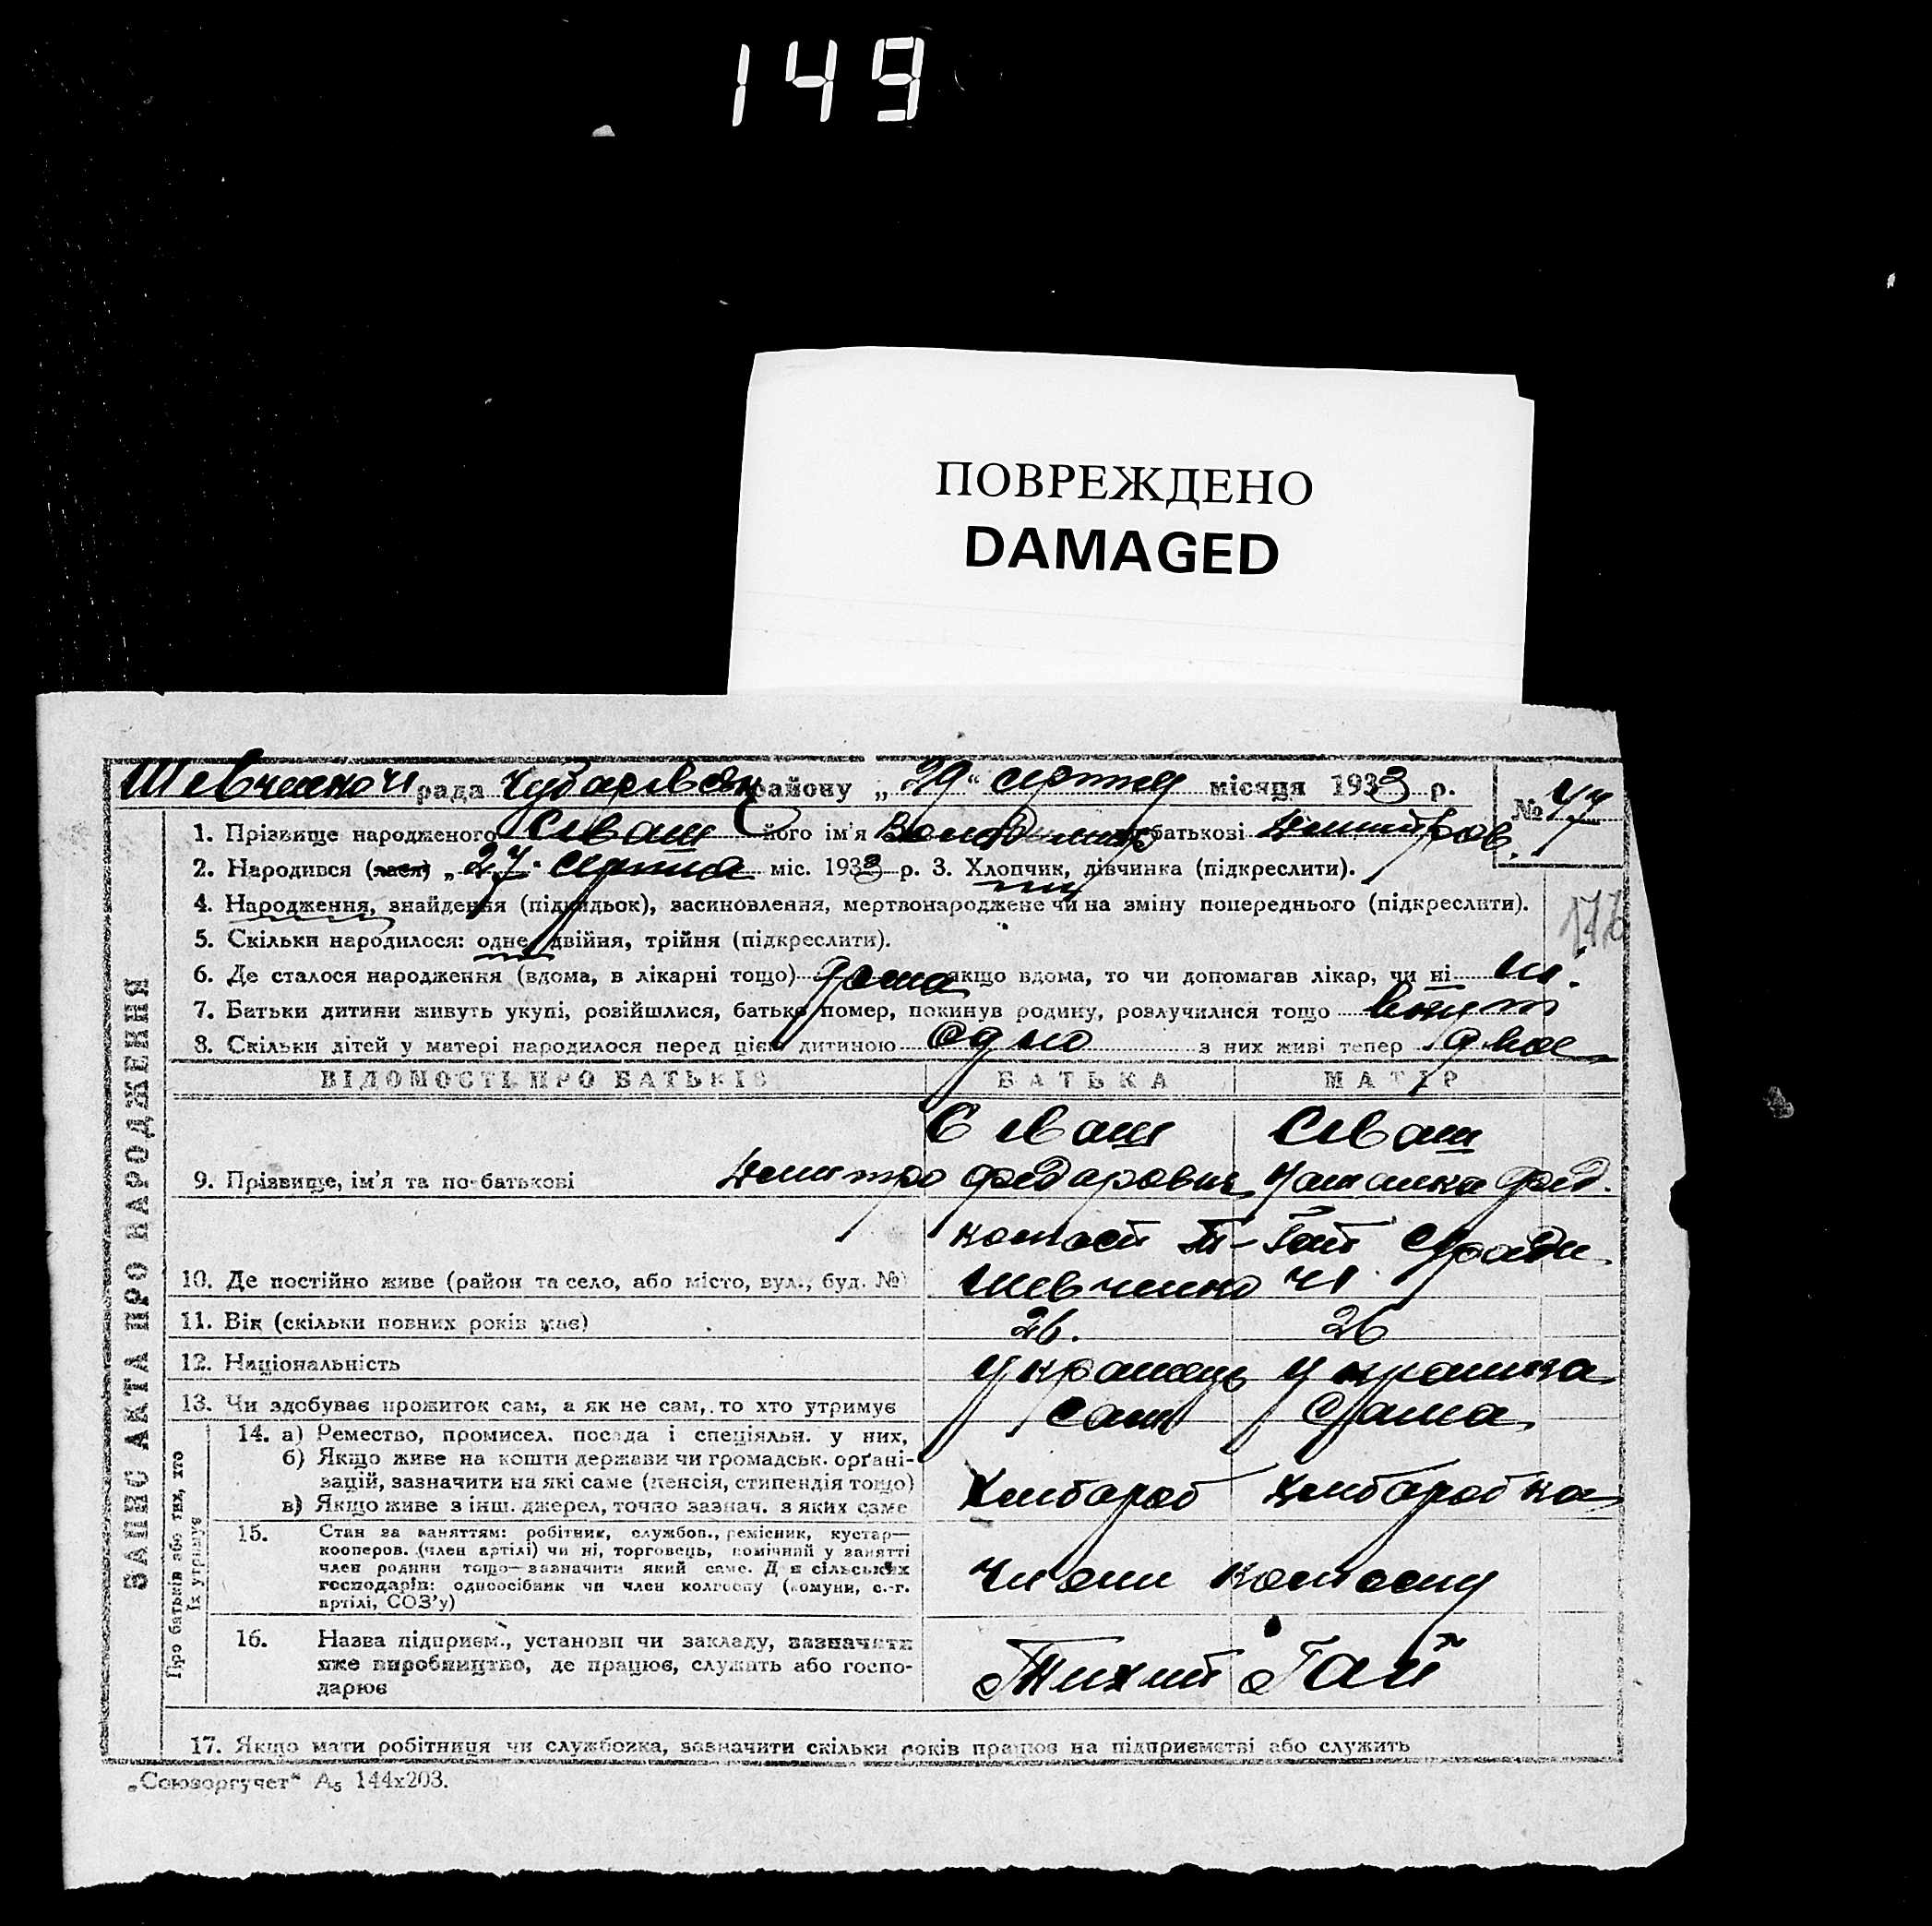 149
ПОВРЕЖДЕНО
DAMAGED
Шевченко ч1 рада Чубарівськ району „29" серпня місяця 1933 р.
№ 47
1. Прізвище народженого Сіваш його ім'я Володимир батькові Дмитров.
2. Народився (лася) „27" серпня міс. 1933 р. 3. Хлопчик, дівчинка (підкреслити).
4. Народження, знайдення (підкидьок), засиновлення, мертвонароджене чи на зміну попереднього (підкреслити).
176
5. Скільки народилося: одне, двійня, трійня (підкреслити).
6. Де сталося народження (вдома, в лікарні тощо) дома якщо вдома, то чи допомагав лікар, чи ні ні.
7. Батьки дитини живуть укупі, розійшлися, батько помер, покинув родину, розлучилися тощо вкупі
8. Скільки дітей у матері народилося перед цією дитиною одно з них живі тепер двоє
ВІДОМОСТІ ПРО БАТЬКІВ БАТЬКА МАТІР
Сіваш Сіваш
9. Прізвище, ім'я та по-батькові Дмитро Федорович Фед.
колгосп Т-Гай с/ради
10. Де постійно живе (район та село, або місто, вул., буд. №) Шевченко ч1.
11. Вік (скільки повних років має) 26. 26
12. Національність Українець Українка
13. Чи здобуває прожиток сам, а як не сам, то хто утримує Сам Сама
14. а) Ремество, промисел. посада і спеціяльн. у них,
б) Якщо живе на кошти держави чи громадськ. орґані-
зацій, зазначити на які саме (пенсія, стипендія тощо)
в) Якщо живе з інш. джерел, точно зазнач. з яких саме Хлібороб Хлібаробка
15. Стан за заняттям: робітник, службов., ремісник, кустар—
кооперов. (член артілі) чи ні, торговець, помічний у занятті
член родини тощо—зазначити який саме. Для сільських
господарів: одноосібник чи член колгоспу (комуни, с.-г.
артілі, СОЗ'у) Члени колгоспу
16. Назва підприєм., установи чи закладу, зазначити
яке виробництво, де працює, служить або госпо-
дарює Тихий Гай
17. Якщо мати робітниця чи службовка, зазначити скільки років працює на підприємстві або служить
ЗАПИС АКТА ПРО НАРОДЖЕННЯ
Про батьків або тих, хто
їх утримує
„Союзоргучет" А5 144х203.